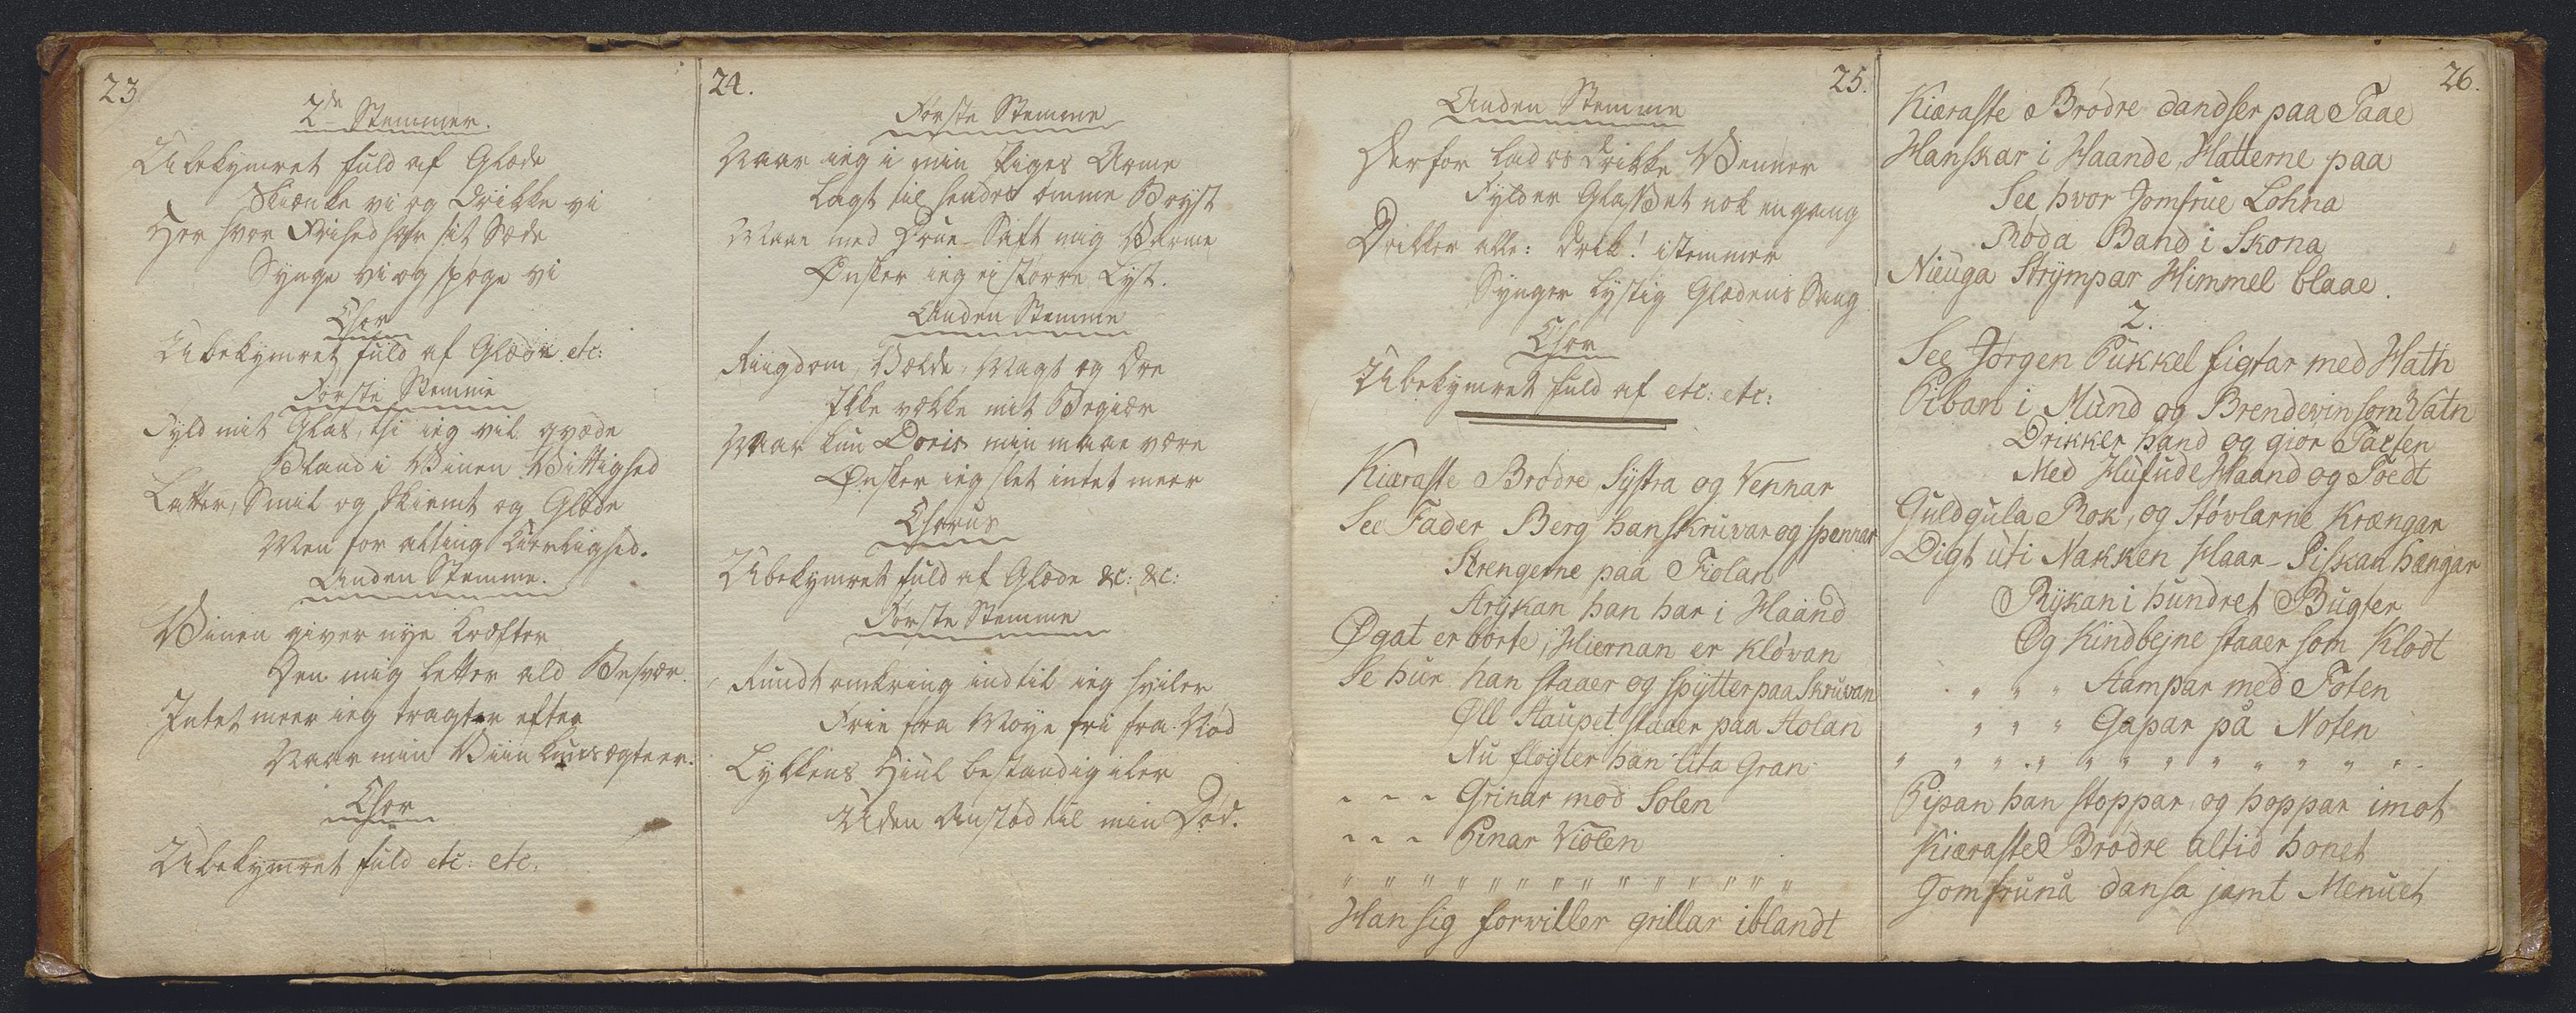 23
2de Stemmer.
Ubekymret fuld af Glæde
Skienke vi og drikke vi
Her hvor Frihed har sit Sæde
Synge vi og spøge vi
Chor
Ubekymret fuld af Glæde. etc:
Første Stemme
Fyld mit Glas, thi ieg vil qvæde
Bland i Vinen Vittighed
Latter, Smil og Skiemt og Glæde
Men for alting Kierlighed.
Anden Stemme.
Vinen giver nye Kræfter
Den mig letter ald Besvær.
Intet meer ieg tragter efter
Naar min Viin kuns ægte er.
Chor
Ubekymret fuld etc: etc.
24.
Første Stemme
Naar ieg i min Piges Arme
Lagt til hendes ømme Bryst
Maae med Drue-Saft mig varme
Ønsker ieg ei større Lyst.
Anden Stemme
Riigdom, Vælde, Magt og Ære
Ikke vække mit Begiær
Naar kun Doris min maae være
Ønsker ieg slet intet meer
Chorus
Ubekymret fuld af Glæde &c: &c:
Første Stemme
Rundt omkring indtil ieg hviler
Frie fra Møye fri fra Nød
Lykkens Hiul bestandig iler
Uden Anstød til min Død.
25.
Anden Stemme
Derfor lad os drikke Venner
Fylder Glasset nok engang
Drikker alle: drik! istemmer
Synger lystig Glædens Sang
Chor
Ubekymret fuld af etc: etc:
Kiæraste Brødre Systra og Vennar
See Fader Berg han skruvar og spennar
Strengerne paa Fiolan
Strykan han har i Haand
Øgat er borte, Hiernan er kløvan
Se hur han staaer og spytter paa Skruvan
Øll Staupet staaer paa Stolan
Nu fløyter han lita Gran
" " " Grinar mod Solen
" " " Pinar Violen
" " " " " " " " " " " " " "
Han sig forviller grillar iblandt
26.
Kiæraste Brødre dandser paa Taae
Hanskar i Haande, Hatterne paa
See hvor Jomfrue Lohna
Røda Band i Skona
Nieuga Strympar Himmel blaae.
2.
See Jørgen Pukkel figtar med Hatn
Piban i Mund og Brendevin som Vatn
Drikker hand og giør Tacten
Med Hufude Haand og Foedt
Guldgula Rok, og Støvlarne Krængar
Digt uti Nakken Haar-Piskan hængar
Rykan i hundret Bugter
Og Kindbejne staaer som Klodt
" " " Stampar med Foten
" " " Gapar på Noten
" " " " " " " " " " " "
Pipan han stoppar, og hoppar imot
Kiæraste Brødre altid honet
Jomfrunå dansa jamt Menuet